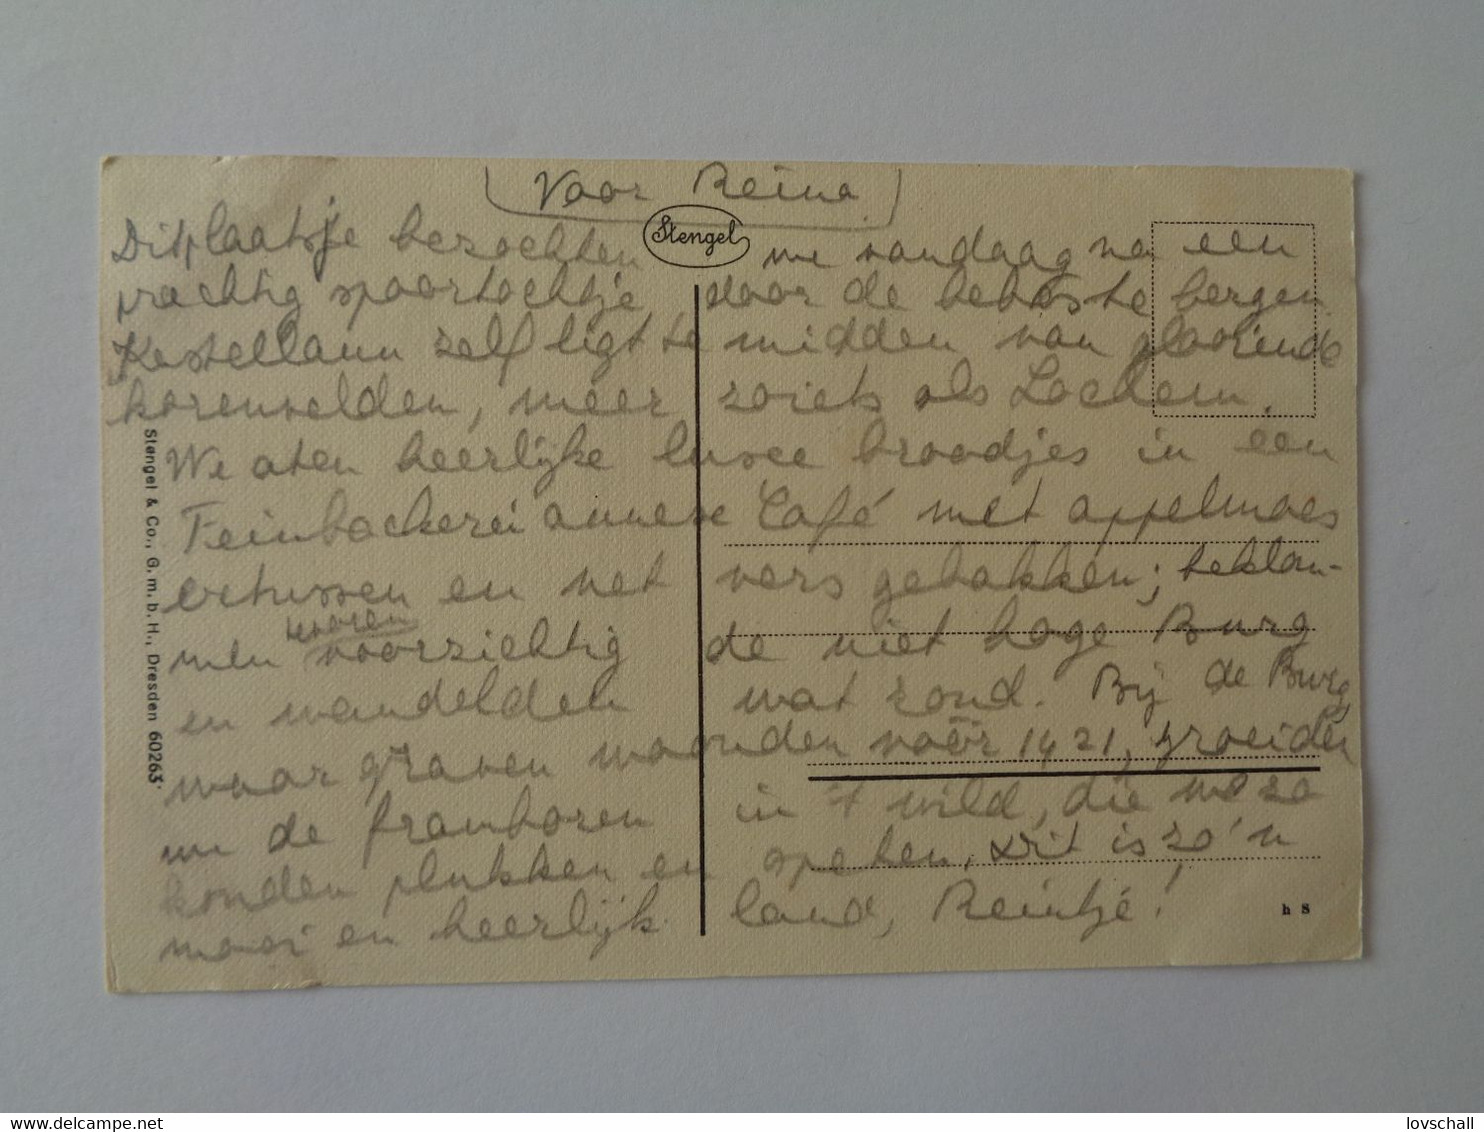 Voor Reina
Stengel
Dit plaatsje bezochten we vandaag na een
prachtig spoortochtje door de beboste bergen
Kastellaun zelf ligt te midden van gloorinde
korenvelden, meer zoiets als Lochem.
We aten heerlijke luxe broodjes in een
Feinbackerei annexe Café met appelmoes
ertussen en net vers gebakken; beklom-
men voorzichtig de niet hoge Burg
en wandelden wat rond. Bij de Burg,
waar graven woonden vóór 1421, groeiden
nu de frambozen in 't wild, die we zo
konden plukken en opeten. Dit is zo'n
mooi en heerlijk land, Reintje!
Stengel & Co., G. m. b. H., Dresden 60263
h S
lovschall